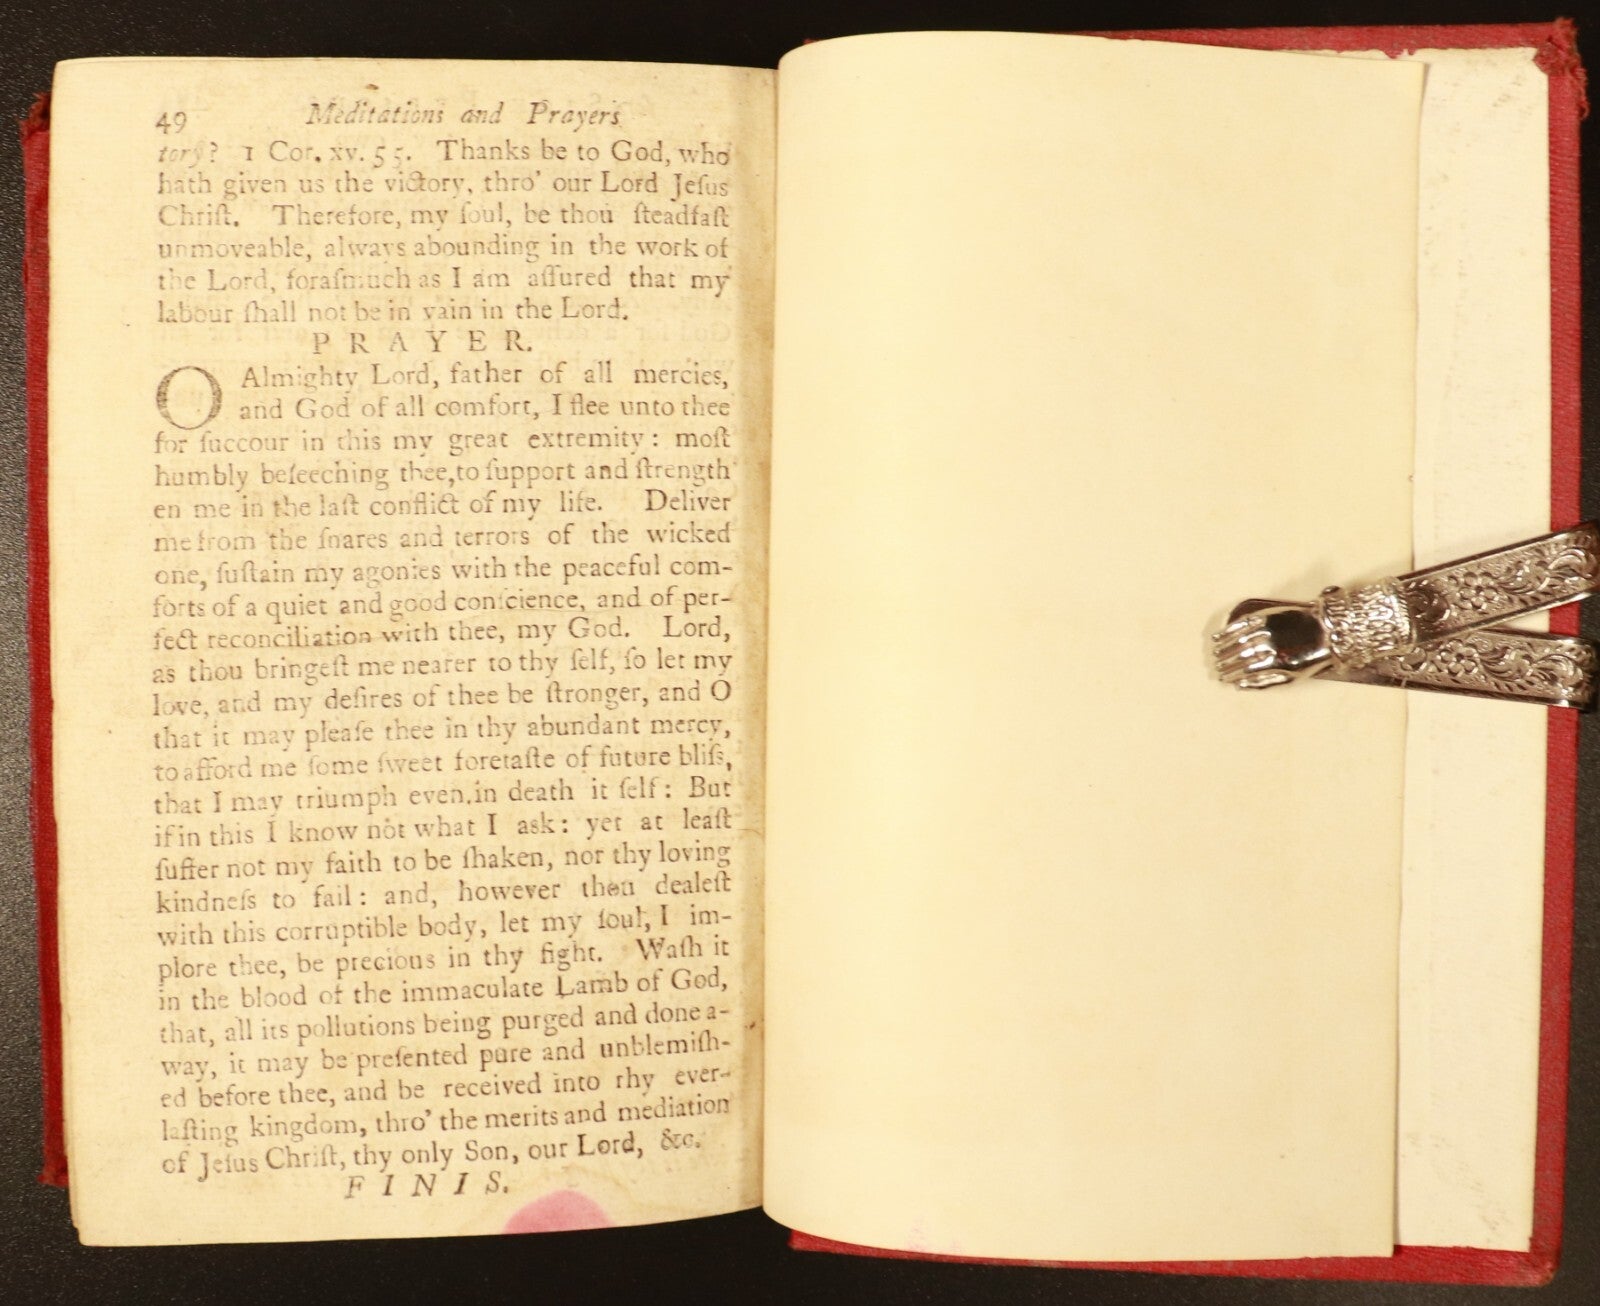 49 Meditations and Prayers
tory? 1 Cor. xv. 55. Thanks be to God, who
hath given us the victory, thro' our Lord Jeſus
Chriſt. Therefore, my ſoul, be thou ſteadfaſt
unmoveable, always abounding in the work of
the Lord, foraſmuch as I am aſſured that my
labour ſhall not be in vain in the Lord.
PRAYER.
O Almighty Lord, father of all mercies,
and God of all comfort, I flee unto thee
for ſuccour in this my great extremity: moſt
humbly beſeeching thee, to ſupport and ſtrength
en me in the laſt conflict of my life. Deliver
me from the ſnares and terrors of the wicked
one, ſuſtain my agonies with the peaceful com-
forts of a quiet and good conſcience, and of per-
fect reconciliation with thee, my God. Lord,
as thou bringeſt me nearer to thy ſelf, ſo let my
love, and my deſires of thee be ſtronger, and O
that it may pleaſe thee in thy abundant mercy,
to afford me ſome ſweet foretaſte of future bliſs,
that I may triumph even in death it ſelf: But
if in this I know not what I ask: yet at leaſt
ſuffer not my faith to be ſhaken, nor thy loving
kindneſs to fail: and, however thou dealeſt
with this corruptible body, let my ſoul, I im-
plore thee, be precious in thy ſight. Waſh it
in the blood of the immaculate Lamb of God,
that, all its pollutions being purged and done a-
way, it may be preſented pure and unblemiſh-
ed before thee, and be received into thy ever-
laſting kingdom, thro' the merits and mediation
of Jeſus Chriſt, thy only Son, our Lord, &c.
FINIS.